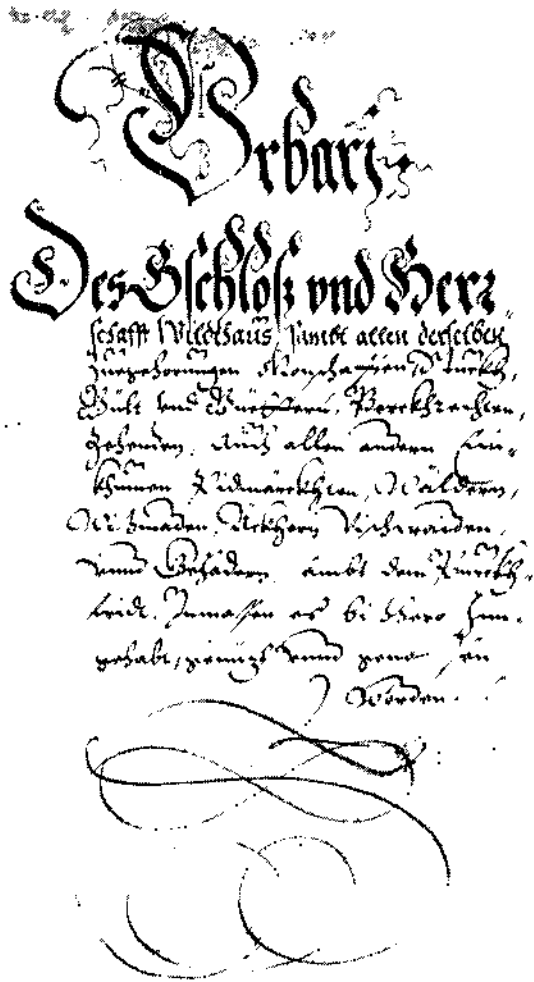 Urbarj
Des Gschloß vnd Herr-
schafft Wildthauß, sambt allen derselben
Zuegehörungen
Gült vnd, Perckhrechten,
Zehenden, Auch allen andern Ein-
khumen, Wäldern,
Wißmaden, Äckhern, Vischwaiden,
vnnd, sambt dem
fridt, Inmassen es bis Hero Inn-
gehabt, genüzt vnnd
Worden.